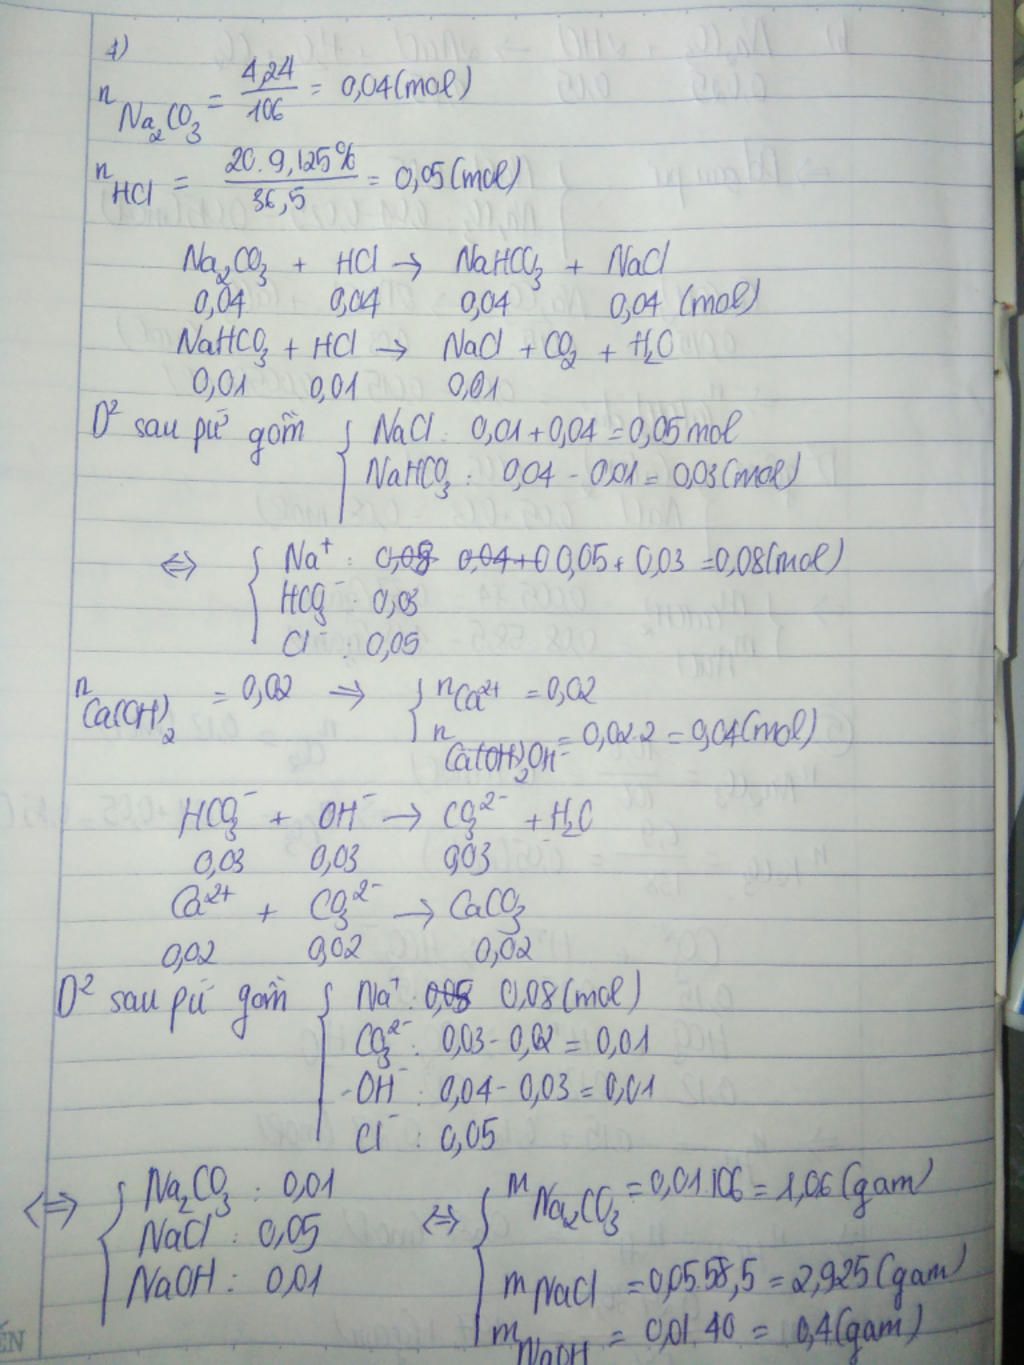 1)
n Na₂CO₃ = 4,24/106 = 0,04 (mol)
n HCl = 20.9,125%/36,5 = 0,05 (mol)
Na₂CO₃ + HCl → NaHCO₃ + NaCl
0,04 0,04 0,04 0,04 (mol)
NaHCO₃ + HCl → NaCl + CO₂ + H₂O
0,01 0,01 0,01
D² sau pứ gồm { NaCl : 0,01 + 0,04 = 0,05 mol
NaHCO₃ : 0,04 - 0,01 = 0,03 (mol)
⇔ { Na⁺ : 0,08 0,04 + 0 0,05 + 0,03 = 0,08 (mol)
HCO₃⁻ : 0,03
Cl⁻ : 0,05
n Ca(OH)₂ = 0,02 ⇒ { n Ca²⁺ = 0,02
n Ca(OH)₂ OH⁻ = 0,02.2 = 0,04 (mol)
HCO₃⁻ + OH⁻ → CO₃²⁻ + H₂O
0,03 0,03 0,03
Ca²⁺ + CO₃²⁻ → CaCO₃
0,02 0,02 0,02
D² sau pứ gồm { Na⁺ : 0,08 0,08 (mol)
CO₃²⁻ : 0,03 - 0,02 = 0,01
-OH⁻ : 0,04 - 0,03 = 0,01
Cl⁻ : 0,05
⇔ { Na₂CO₃ : 0,01 ⇔ { m Na₂CO₃ = 0,01.106 = 1,06 (gam)
NaCl : 0,05
NaOH : 0,01
m NaCl = 0,05.58,5 = 2,925 (gam)
m NaOH = 0,01.40 = 0,4 (gam)
ẾN